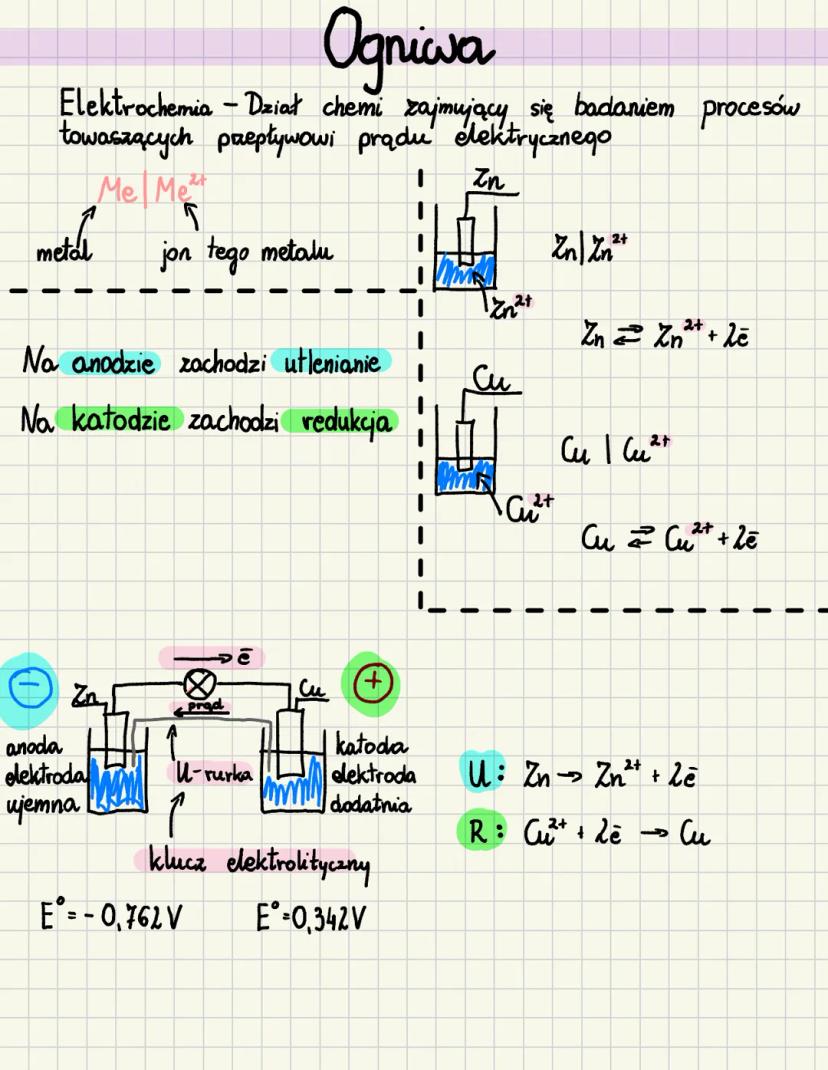 Ogniwa
Elektrochemia – Dział chemi zajmujący się badaniem procesów
towaszących przepływowi prądu elektrycznego
Me | Me²⁺
metal
jon tego metalu
Zn
Zn | Zn²⁺
Zn²⁺
Zn ⇄ Zn²⁺ + 2ē
Na anodzie zachodzi utlenianie
Na katodzie zachodzi redukcja
Cu
Cu | Cu²⁺
Cu²⁺
Cu ⇄ Cu²⁺ + 2ē
ē
− Zn Cu +
prąd
anoda
elektroda
ujemna
U-rurka
katoda
elektroda
dodatnia
klucz elektrolityczny
E° = - 0,762V E° = 0,342V
U: Zn → Zn²⁺ + 2ē
R: Cu²⁺ + 2ē → Cu